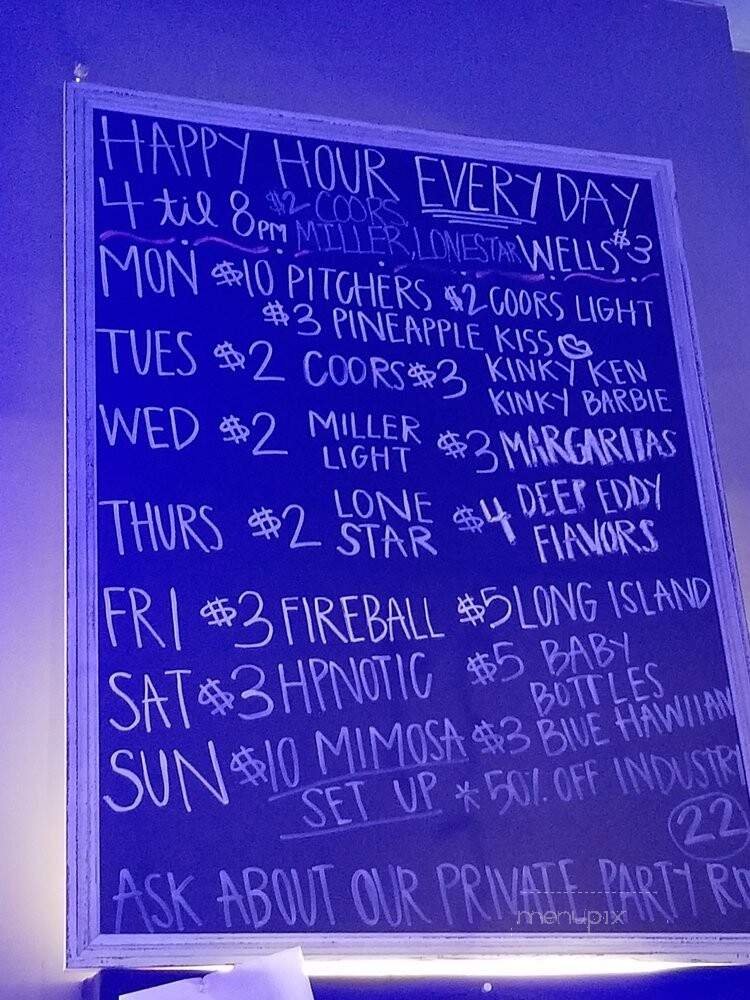 HAPPY HOUR EVERY DAY
4 til 8PM $2 COORS, MILLER, LONESTAR WELLS $3
MON $10 PITCHERS $2 COORS LIGHT
$3 PINEAPPLE KISS
TUES $2 COORS $3 KINKY KEN
KINKY BARBIE
WED $2 MILLER LIGHT $3 MARGARITAS
THURS $2 LONE STAR $4 DEEP EDDY FLAVORS
FRI $3 FIREBALL $5 LONG ISLAND
SAT $3 HPNOTIC $5 BABY BOTTLES
SUN $10 MIMOSA SET UP $3 BLUE HAWIIAN
* 50% OFF INDUSTRY
22
ASK ABOUT OUR PRIVATE PARTY
menupix